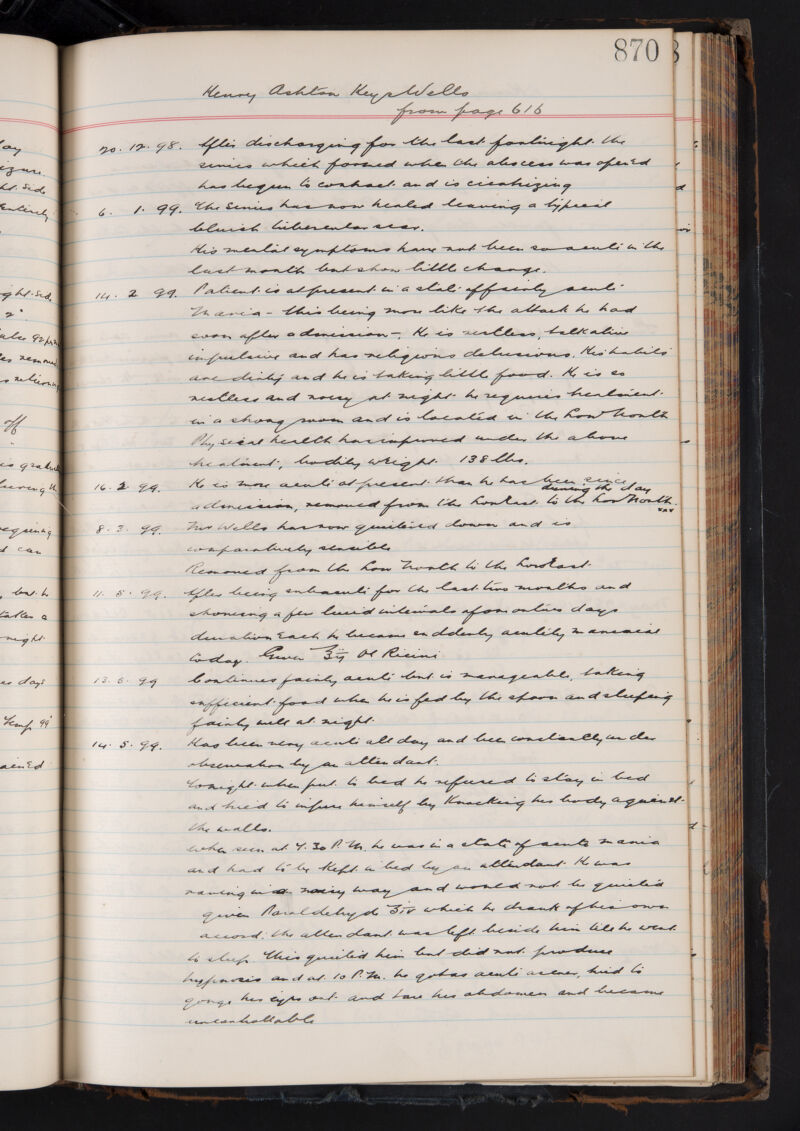 870
Henry Ashton Keys Wells
from page 616
20. 12. 98. After discharging for the last fortnight the
sinus which formed when the abscess was opened
has begun to contract and is cicatrizing
6. 1. 99. The sinus has now healed leaving a typical
bluish tubercular scar.
His mental symptoms have not been so acute in the
last month but show little change.
14. 2 99. Patient is at present in a state of fairly acute
Mania - this being more like the attack he had
soon after admission -. He is restless, talkative
impulsive and has religious delusions. His habits
are dirty and he is taking little food. He is so
restless and noisy at night he requires treatment
in a strong room and is located in the Low North
Physical health has improved under the above
treatment, bodily weight 138 lbs.
16. 2 99. He is more acute at present than he has been since
during the day
admission, removed from the Low East to the Low North.
8. 3. 99. Mr Wells has now quieted down and is
comparatively sensible
Removed from the Low North to the Low East.
11. 5. 99. After being subacute for the last two months and
showing a few lucid intervals of one or two days
duration each he became suddenly acutely maniacal
today. Given Ol Ricini
13. 5. 99 Continues fairly acute but is manageable, taking
sufficient food when he is fed by the spoon and sleeping
fairly well at night.
14. 5. 99. Has been very acute all day and been constantly under
observation by an attendant.
Tonight when put to bed he refused to stay in bed
and tried to injure himself by knocking his body against
the walls.
When seen at 7.30 P.M. he was in a state of acute mania
and had to be kept in bed by an attendant. He was
raving in a noisy way and would not be quieted
given Paraldehyde which he drank of his own
accord. The attendant was left beside him till he went
to sleep. This quieted him but did not produce
hypnosis and at 10 P.M. he got as acute as ever, tried to
gouge his eyes out and tore his abdomen and became
uncontrollable